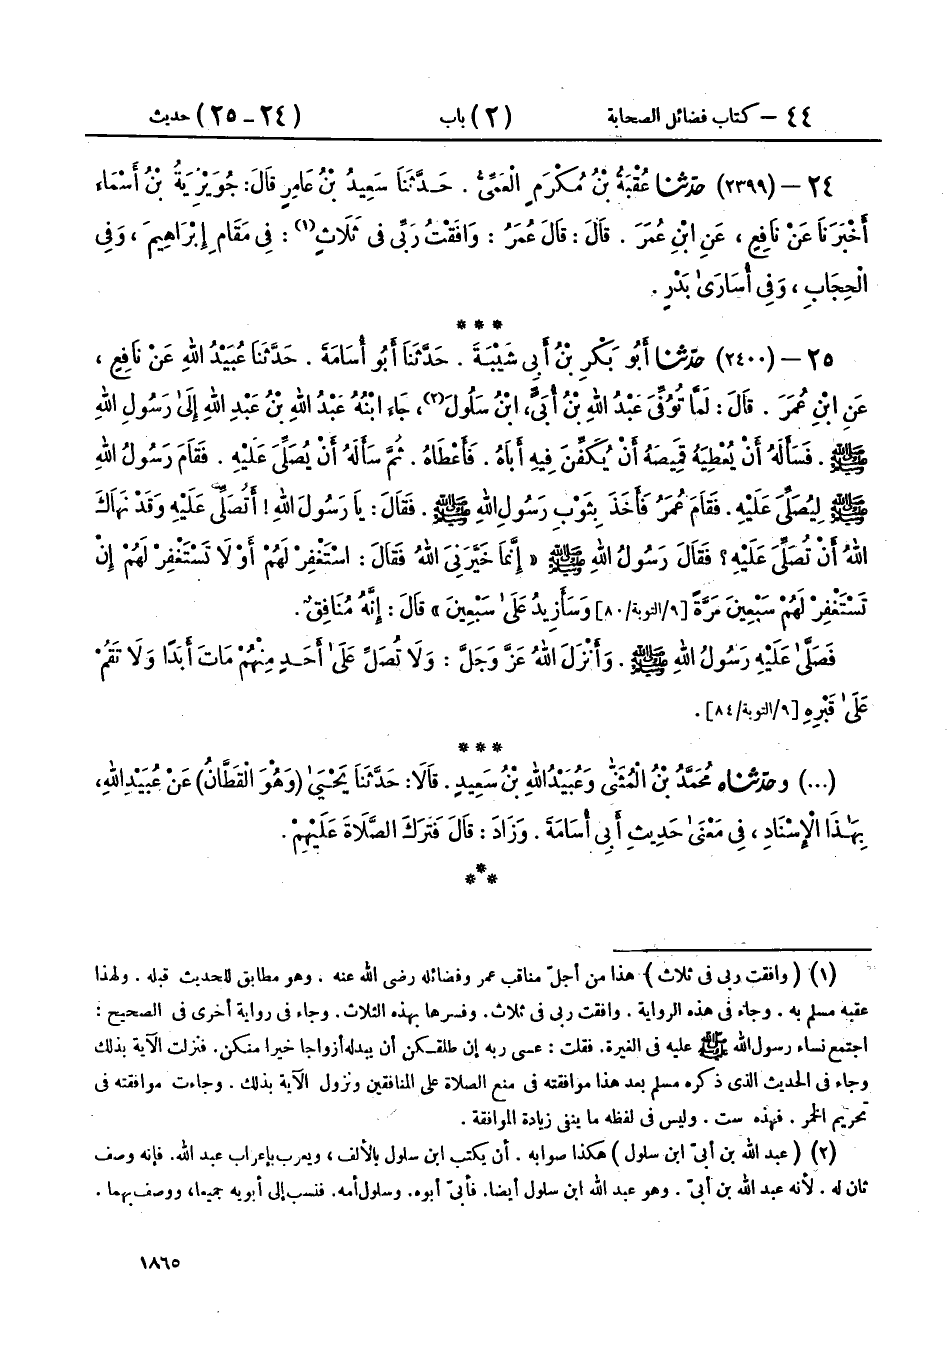 ٤٤ – كتاب فضائل الصحابة (٢) باب (٢٤ – ٢٥) حديث
٢٤ – (٢٣٩٩) حَدَّثَنَا عُقْبَةُ بْنُ مُكْرَمٍ الْعَمِّىُّ . حَدَّثَنَا سَعِيدُ بْنُ عَامِرٍ قَالَ: جُوَيْرِيَةُ بْنُ أَسْمَاءَ
أَخْبَرَنَا عَنْ نَافِعٍ ، عَنِ ابْنِ عُمَرَ . قَالَ : قَالَ عُمَرُ : وَافَقْتُ رَبِّى فِى ثَلَاثٍ(١) : فِى مَقَامِ إِبْرَاهِيمَ ، وَفِى
الْحِجَابِ ، وَفِى أُسَارَىٰ بَدْرٍ .
* * *
٢٥ – (٢٤٠٠) حَدَّثَنَا أَبُو بَكْرِ بْنُ أَبِى شَيْبَةَ . حَدَّثَنَا أَبُو أُسَامَةَ . حَدَّثَنَا عُبَيْدُ اللهِ عَنْ نَافِعٍ ،
عَنِ ابْنِ عُمَرَ . قَالَ : لَمَّا تُوُفِّىَ عَبْدُ اللهِ بْنُ أُبَىٍّ، ابْنُ سَلُولَ(٢)، جَاءَ ابْنُهُ عَبْدُ اللهِ بْنُ عَبْدِ اللهِ إِلَىٰ رَسُولِ اللهِ
ﷺ . فَسَأَلَهُ أَنْ يُعْطِيَهُ قَمِيصَهُ أَنْ يُكَفِّنَ فِيهِ أَبَاهُ . فَأَعْطَاهُ . ثُمَّ سَأَلَهُ أَنْ يُصَلِّىَ عَلَيْهِ . فَقَامَ رَسُولُ اللهِ
ﷺ لِيُصَلِّىَ عَلَيْهِ . فَقَامَ عُمَرُ فَأَخَذَ بِثَوْبِ رَسُولِ اللهِ ﷺ . فَقَالَ : يَا رَسُولَ اللهِ ! أَتُصَلِّى عَلَيْهِ وَقَدْ نَهَاكَ
اللهُ أَنْ تُصَلِّىَ عَلَيْهِ ؟ فَقَالَ رَسُولُ اللهِ ﷺ « إِنَّمَا خَيَّرَنِىَ اللهُ فَقَالَ : اسْتَغْفِرْ لَهُمْ أَوْ لَا تَسْتَغْفِرْ لَهُمْ إِنْ
تَسْتَغْفِرْ لَهُمْ سَبْعِينَ مَرَّةً [٩/التوبة/٨٠] وَسَأَزِيدُ عَلَىٰ سَبْعِينَ » قَالَ : إِنَّهُ مُنَافِقٌ .
فَصَلَّىٰ عَلَيْهِ رَسُولُ اللهِ ﷺ . وَأَنْزَلَ اللهُ عَزَّ وَجَلَّ : وَلَا تُصَلِّ عَلَىٰ أَحَدٍ مِنْهُمْ مَاتَ أَبَدًا وَلَا تَقُمْ
عَلَىٰ قَبْرِهِ [٩/التوبة/٨٤] .
* * *
(...) وحَدَّثَنَاه مُحَمَّدُ بْنُ الْمُثَنَّىٰ وَعُبَيْدُ اللهِ بْنُ سَعِيدٍ . قَالَا : حَدَّثَنَا يَحْيَىٰ (وَهُوَ الْقَطَّانُ) عَنْ عُبَيْدِ اللهِ ،
بِهَـٰذَا الْإِسْنَادِ ، فِى مَعْنَىٰ حَدِيثِ أَبِى أُسَامَةَ . وَزَادَ : قَالَ فَتَرَكَ الصَّلَاةَ عَلَيْهِمْ .
* * *
(١) ( وافقت ربى فى ثلاث ) هذا من أجلّ مناقب عمر وفضائله رضى الله عنه . وهو مطابق للحديث قبله . ولهذا
عقبه مسلم به . وجاء فى هذه الرواية . وافقت ربى فى ثلاث . وفسرها بهذه الثلاث . وجاء فى رواية أخرى فى الصحيح :
اجتمع نساء رسول الله ﷺ عليه فى الغيرة. فقلت : عسى ربه إن طلقـكن أن يبدله أزواجا خيرا منكن. فنزلت الآية بذلك
وجاء فى الحديث الذى ذكره مسلم بعد هذا موافقته فى منع الصلاة على المنافقين ونزول الآية بذلك . وجاءت موافقته فى
تحريم الخمر . فهذه ست . وليس فى لفظه ما ينفى زيادة الموافقة .
(٢) ( عبد الله بن أبىّ ابن سلول ) هكذا صوابه . أن يكتب ابن سلول بالألف ، ويعرب بإعراب عبد الله. فإنه وصف
ثان له . لأنه عبد الله بن أبىّ . وهو عبد الله ابن سلول أيضا. فأبىّ أبوه. وسلول أمه. فنسب إلى أبويه جميعا، ووصف بهما .
١٨٦٥